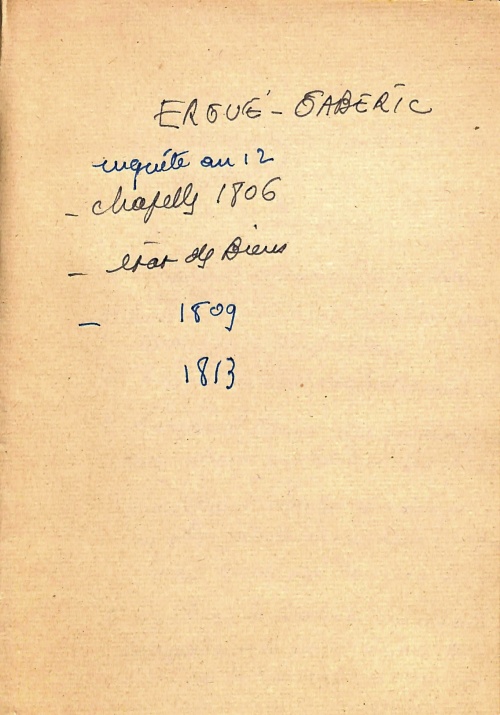 ERGUÉ-GABERIC
enquête an 12
- chapelles 1806
- état des Biens
- 1809
1813